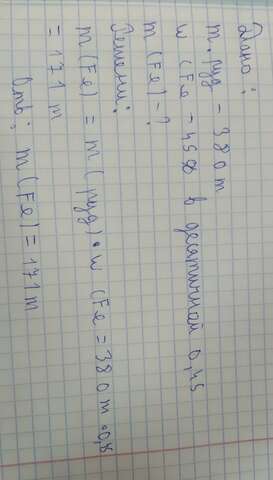 Дано:
m. руд - 380 т
w (Fe - 45% в десятичной 0,45
m (Fe) - ?
Решени:
m (Fe) = m (руд) • w (Fe = 380 т • 0,45
= 171 т
Отв: m (Fe) = 171 т